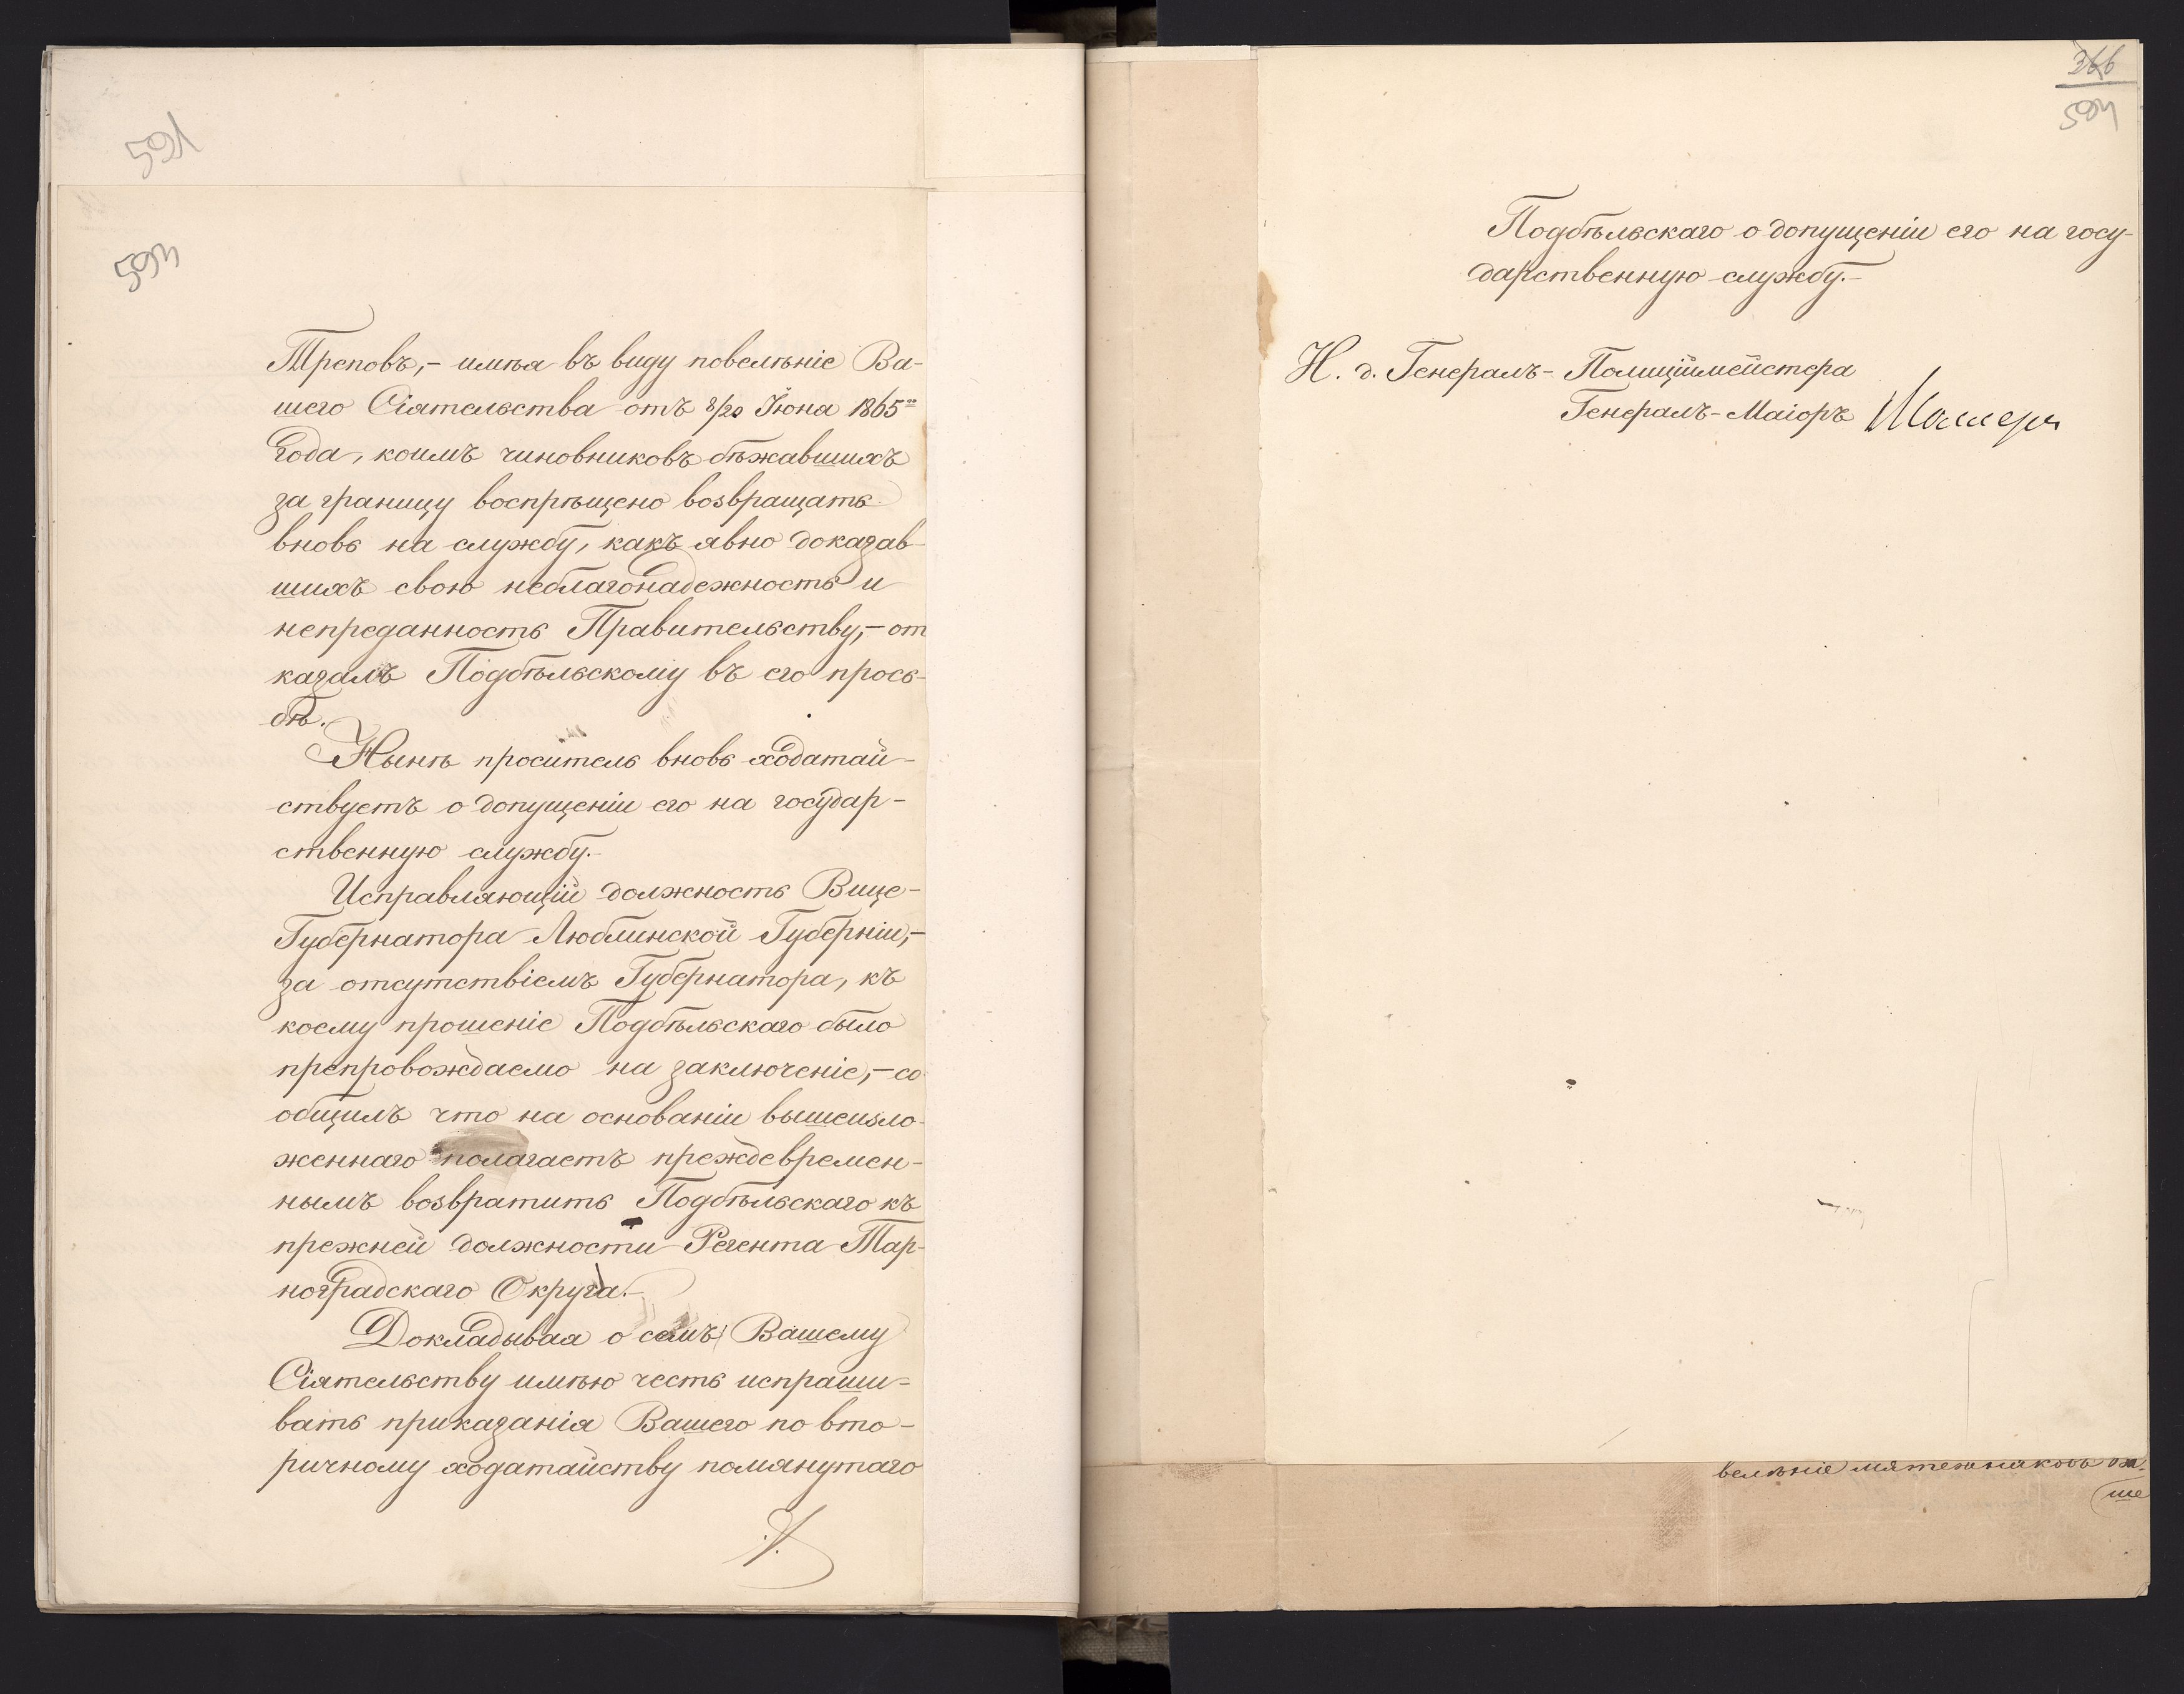 591
593
Треповъ,- имѣя въ виду повелѣніе Ва-
шего Сіятельства отъ 8/20 Іюня 1865го
года, коимъ чиновниковъ бѣжавшихъ
за границу воспрѣщено возвращать
вновь на службу, какъ явно доказав-
шихъ свою неблагонадежность и
непреданность Правительству,- от
казалъ Подбѣльскому въ его прось-
бѣ.
Нынѣ проситель вновь ходатай-
ствуетъ о допущеніи его на государ-
ственную службу.-
Исправляющій должность Вице-
Губернатора Люблинской Губерніи,-
за отсутствіемъ Губернатора, къ
коему прошеніе Подбѣльскаго было
препровождаемо на заключеніе,- со
общилъ что на основаніи вышеизло-
женнаго полагаетъ преждевремен-
нымъ возвратить Подбѣльскаго къ
прежней должности Регента Тар-
ноградскаго Округа.-
Докладывая о семъ Вашему
Сіятельству имѣю честь испраши-
вать приказанія Вашего по вто-
ричному ходатайству помянутаго
./.
366
594
Подбѣльскаго о допущеніи его на госу-
дарственную службу.-
И. д. Генералъ-Полиціймейстера
Генералъ-Маіоръ
велѣніе мятежниковъ
ше